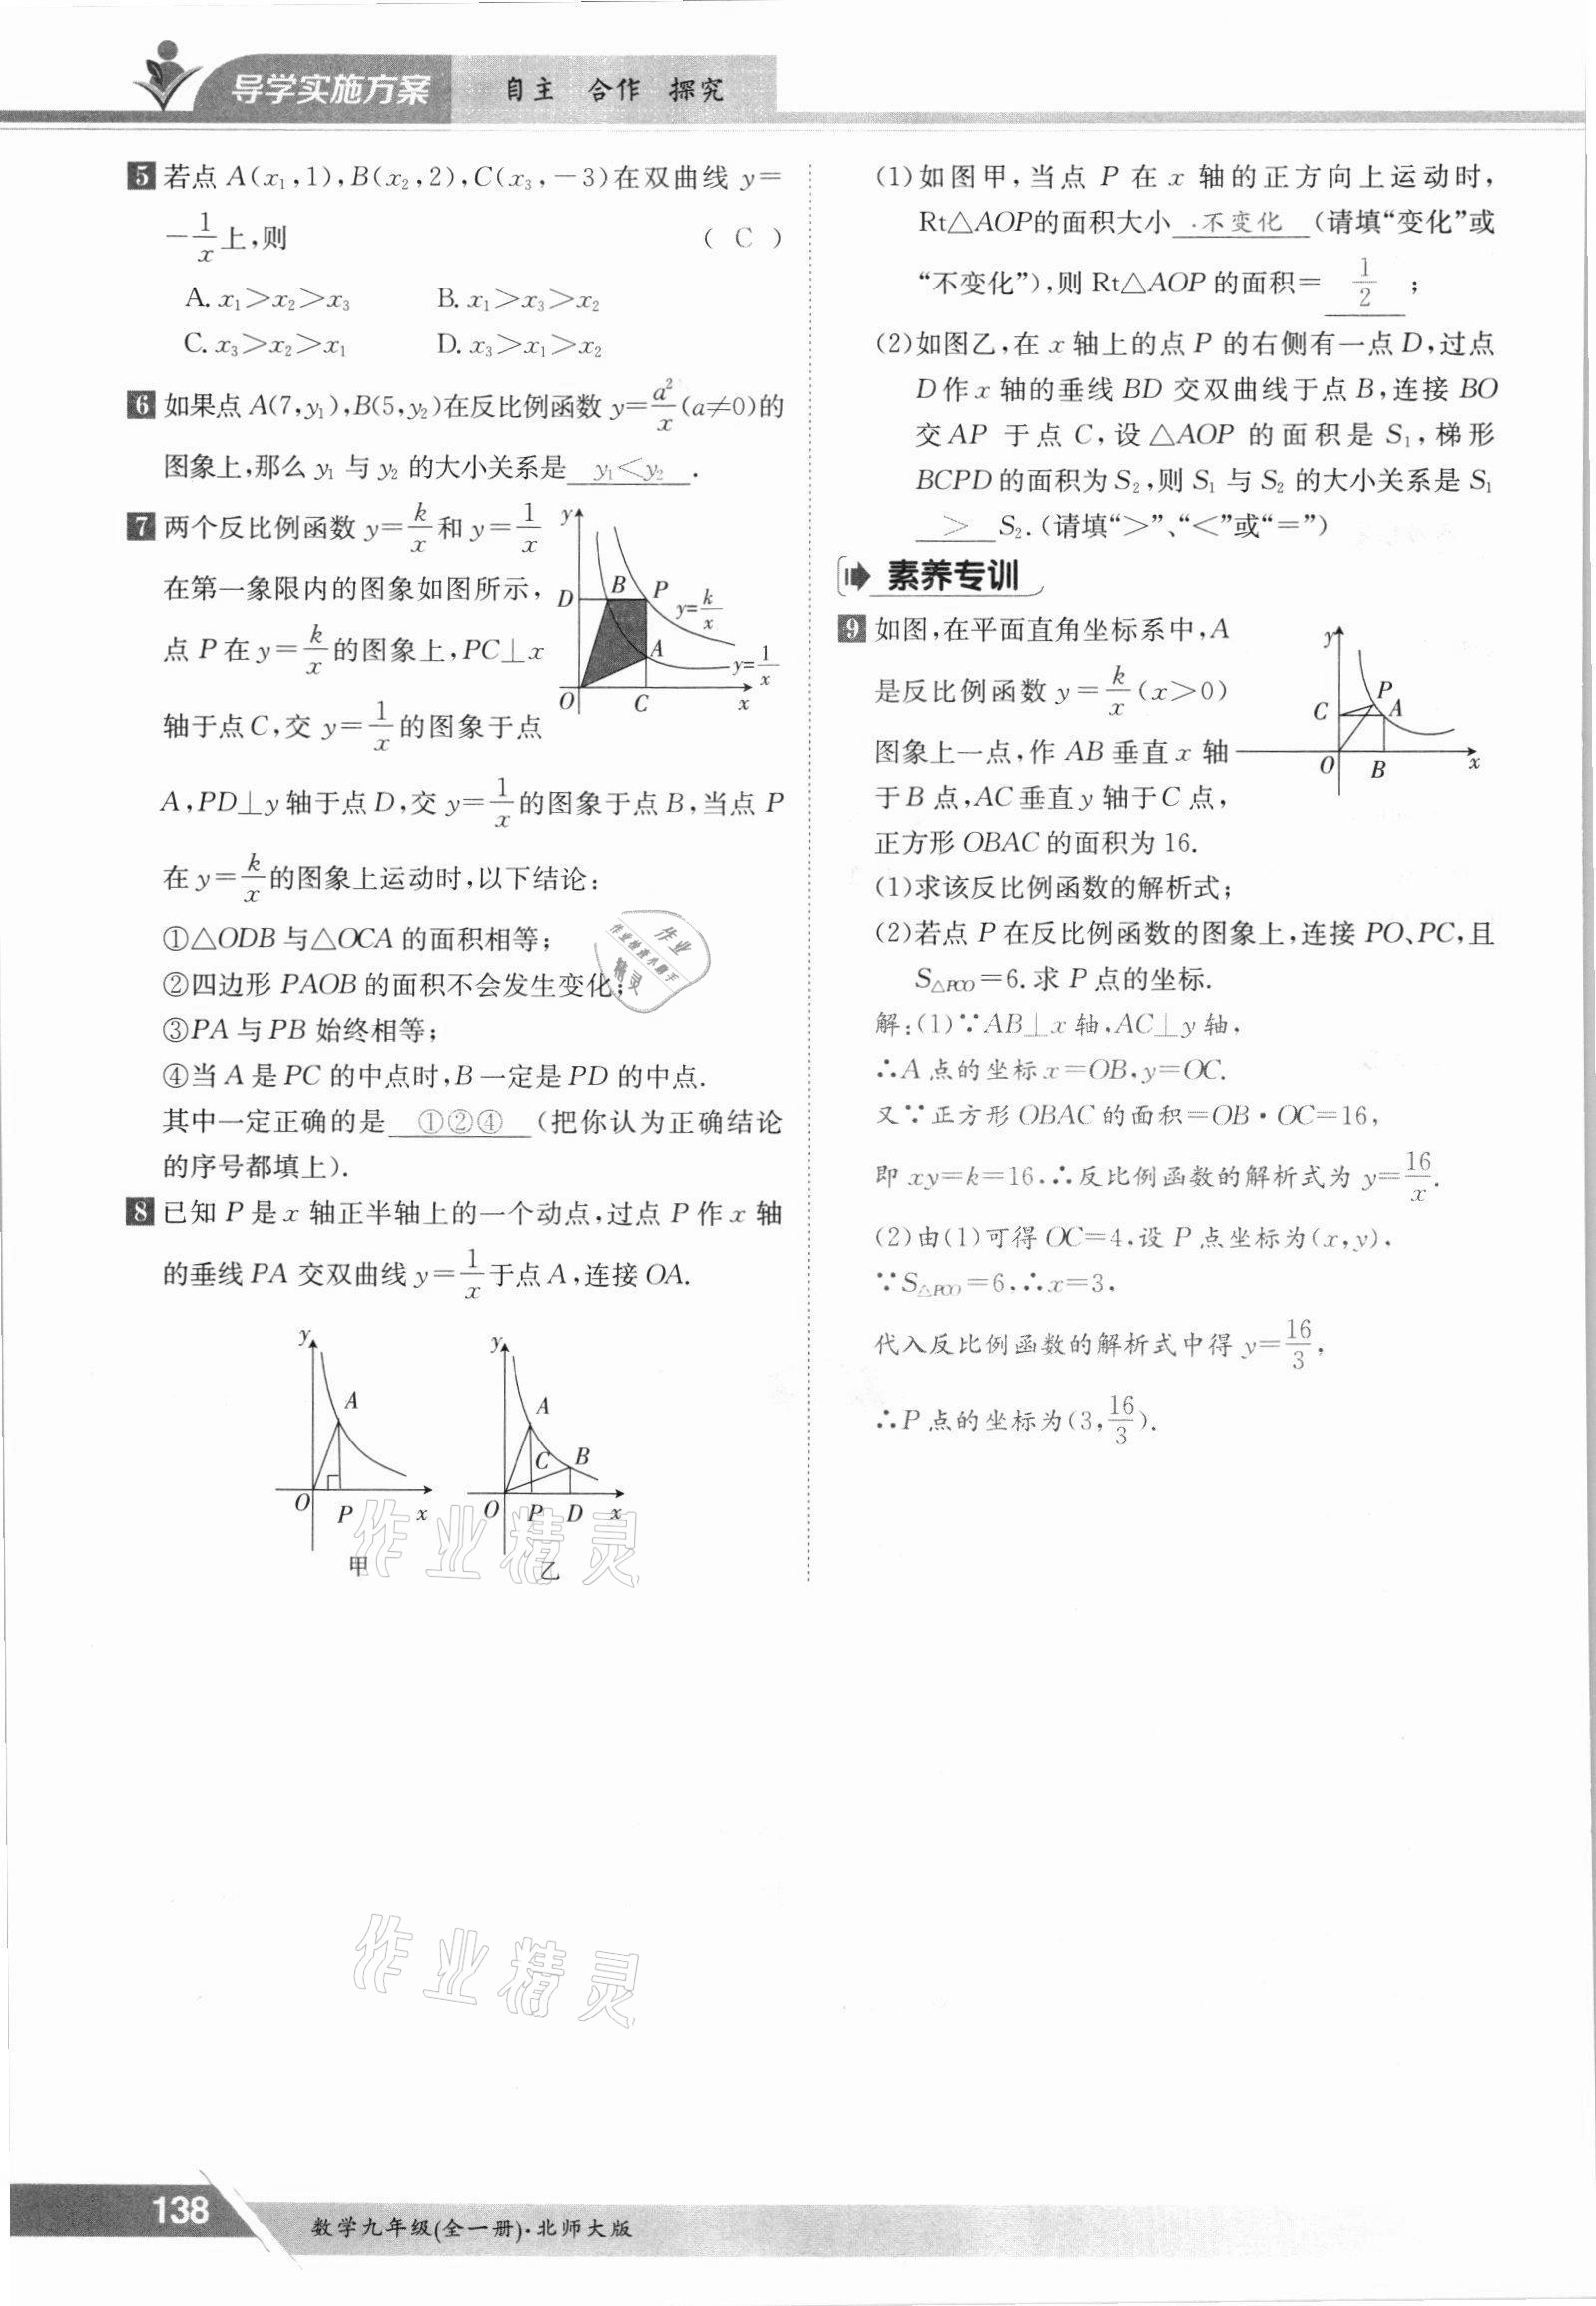 导学实施方案 自主 合作 探究
5 若点 A(x₁,1),B(x₂,2),C(x₃,-3)在双曲线 y=
-1/x上,则 ( C )
A. x₁>x₂>x₃ B. x₁>x₃>x₂
C. x₃>x₂>x₁ D. x₃>x₁>x₂
6 如果点 A(7,y₁),B(5,y₂)在反比例函数 y=a²/x(a≠0)的
图象上,那么 y₁ 与 y₂ 的大小关系是 y₁<y₂ .
7 两个反比例函数 y=k/x和 y=1/x
在第一象限内的图象如图所示,
点 P 在 y=k/x的图象上,PC⊥x
轴于点 C,交 y=1/x的图象于点
A,PD⊥y 轴于点 D,交 y=1/x的图象于点 B,当点 P
在 y=k/x的图象上运动时,以下结论:
①△ODB 与△OCA 的面积相等;
②四边形 PAOB 的面积不会发生变化;
③PA 与 PB 始终相等;
④当 A 是 PC 的中点时,B 一定是 PD 的中点.
其中一定正确的是 ①②④ (把你认为正确结论
的序号都填上).
y
D
B
P
y=k/x
A
y=1/x
O
C
x
8 已知 P 是 x 轴正半轴上的一个动点,过点 P 作 x 轴
的垂线 PA 交双曲线 y=1/x于点 A,连接 OA.
y
A
O
P
x
甲
y
A
C
B
O
P
D
x
乙
(1)如图甲,当点 P 在 x 轴的正方向上运动时,
Rt△AOP的面积大小 不变化 (请填“变化”或
“不变化”),则 Rt△AOP 的面积= 1/2 ;
(2)如图乙,在 x 轴上的点 P 的右侧有一点 D,过点
D 作 x 轴的垂线 BD 交双曲线于点 B,连接 BO
交 AP 于点 C,设△AOP 的面积是 S₁,梯形
BCPD 的面积为 S₂,则 S₁ 与 S₂ 的大小关系是 S₁
> S₂.(请填“>”、“<”或“=”)
素养专训
9 如图,在平面直角坐标系中,A
是反比例函数 y=k/x(x>0)
图象上一点,作 AB 垂直 x 轴
于 B 点,AC 垂直 y 轴于 C 点,
正方形 OBAC 的面积为 16.
y
P
C
A
O
B
x
(1)求该反比例函数的解析式;
(2)若点 P 在反比例函数的图象上,连接 PO、PC,且
S△PCO=6.求 P 点的坐标.
解:(1)∵AB⊥x 轴,AC⊥y 轴,
∴A 点的坐标 x=OB,y=OC.
又∵正方形 OBAC 的面积=OB·OC=16,
即 xy=k=16.∴反比例函数的解析式为 y=16/x.
(2)由(1)可得 OC=4,设 P 点坐标为(x,y),
∵S△PCO=6,∴x=3,
代入反比例函数的解析式中得 y=16/3,
∴P 点的坐标为(3,16/3).
作业
作业检查小助手
精灵
作业精灵
作业精灵
138 数学九年级(全一册)·北师大版